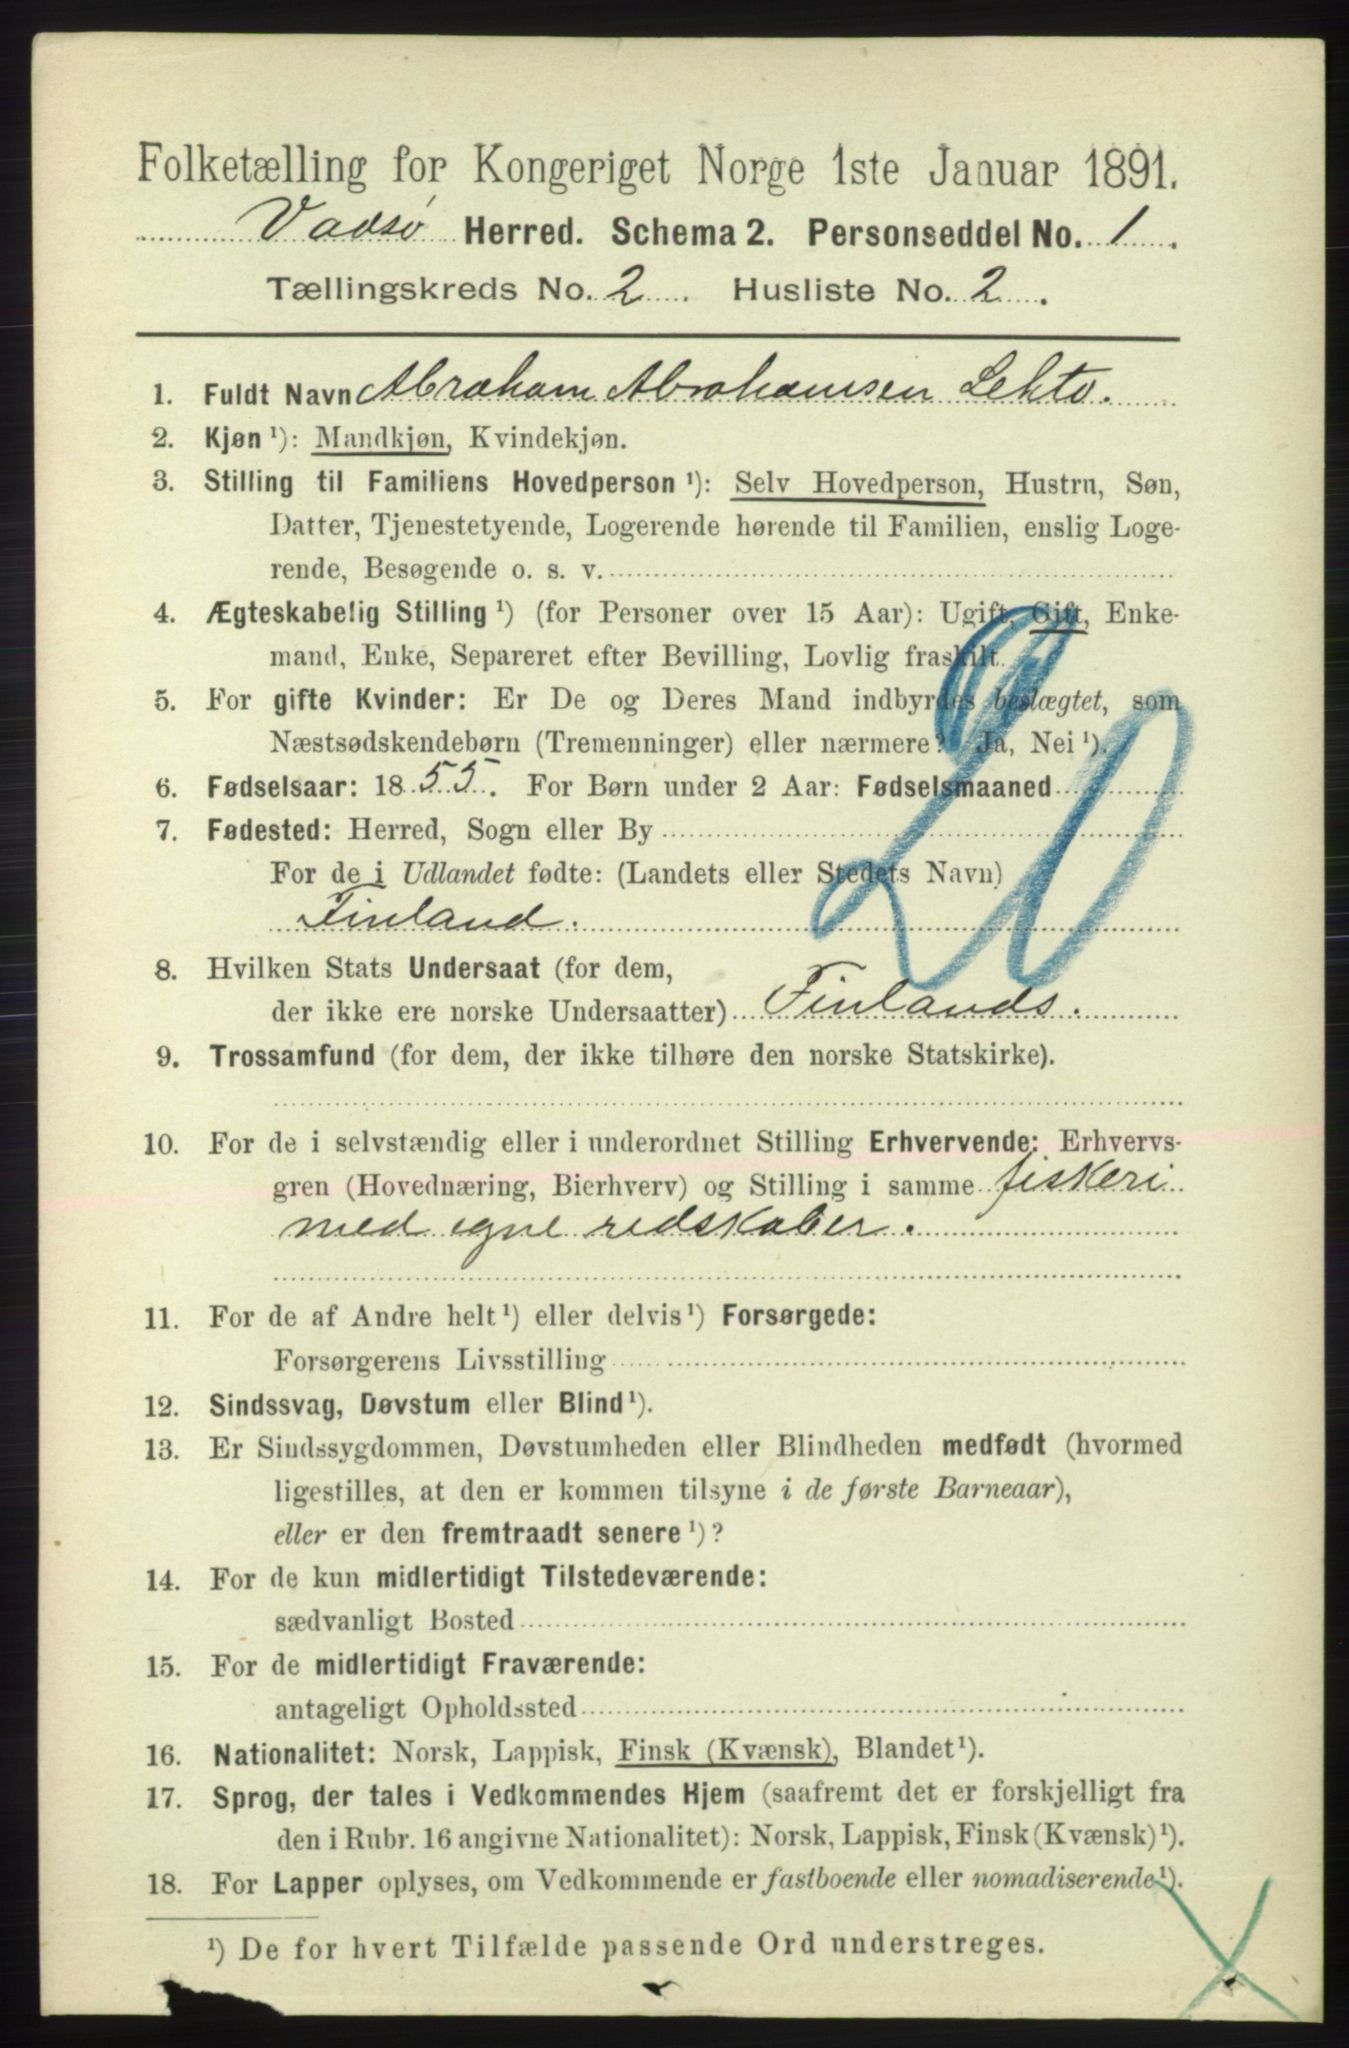 Folketælling for Kongeriget Norge 1ste Januar 1891.
Vadsø Herred. Schema 2. Personseddel No. 1.
Tællingskreds No. 2. Husliste No. 2.
1. Fuldt Navn Abraham Abrahamsen Lehto.
2. Kjøn ¹): Mandkjøn, Kvindekjøn.
3. Stilling til Familiens Hovedperson ¹): Selv Hovedperson, Hustru, Søn,
Datter, Tjenestetyende, Logerende hørende til Familien, enslig Loge-
rende, Besøgende o. s. v.
4. Ægteskabelig Stilling ¹) (for Personer over 15 Aar): Ugift, Gift, Enke-
mand, Enke, Separeret efter Bevilling, Lovlig fraskilt.
5. For gifte Kvinder: Er De og Deres Mand indbyrdes beslægtet, som
Næstsødskendebørn (Tremenninger) eller nærmere? Ja, Nei ¹).
20
6. Fødselsaar: 1855. For Børn under 2 Aar: Fødselsmaaned
7. Fødested: Herred, Sogn eller By
For de i Udlandet fødte: (Landets eller Stedets Navn)
Finland.
8. Hvilken Stats Undersaat (for dem,
der ikke ere norske Undersaatter) Finlands.
9. Trossamfund (for dem, der ikke tilhøre den norske Statskirke).
10. For de i selvstændig eller i underordnet Stilling Erhvervende: Erhvervs-
gren (Hovednæring, Bierhverv) og Stilling i samme fiskeri
med egne redskaber.
11. For de af Andre helt ¹) eller delvis ¹) Forsørgede:
Forsørgerens Livsstilling
12. Sindssvag, Døvstum eller Blind ¹).
13. Er Sindssygdommen, Døvstumheden eller Blindheden medfødt (hvormed
ligestilles, at den er kommen tilsyne i de første Barneaar),
eller er den fremtraadt senere ¹)?
14. For de kun midlertidigt Tilstedeværende:
sædvanligt Bosted
15. For de midlertidigt Fraværende:
antageligt Opholdssted
16. Nationalitet: Norsk, Lappisk, Finsk (Kvænsk), Blandet ¹).
17. Sprog, der tales i Vedkommendes Hjem (saafremt det er forskjelligt fra
den i Rubr. 16 angivne Nationalitet): Norsk, Lappisk, Finsk (Kvænsk) ¹).
18. For Lapper oplyses, om Vedkommende er fastboende eller nomadiserende ¹).
¹) De for hvert Tilfælde passende Ord understreges.